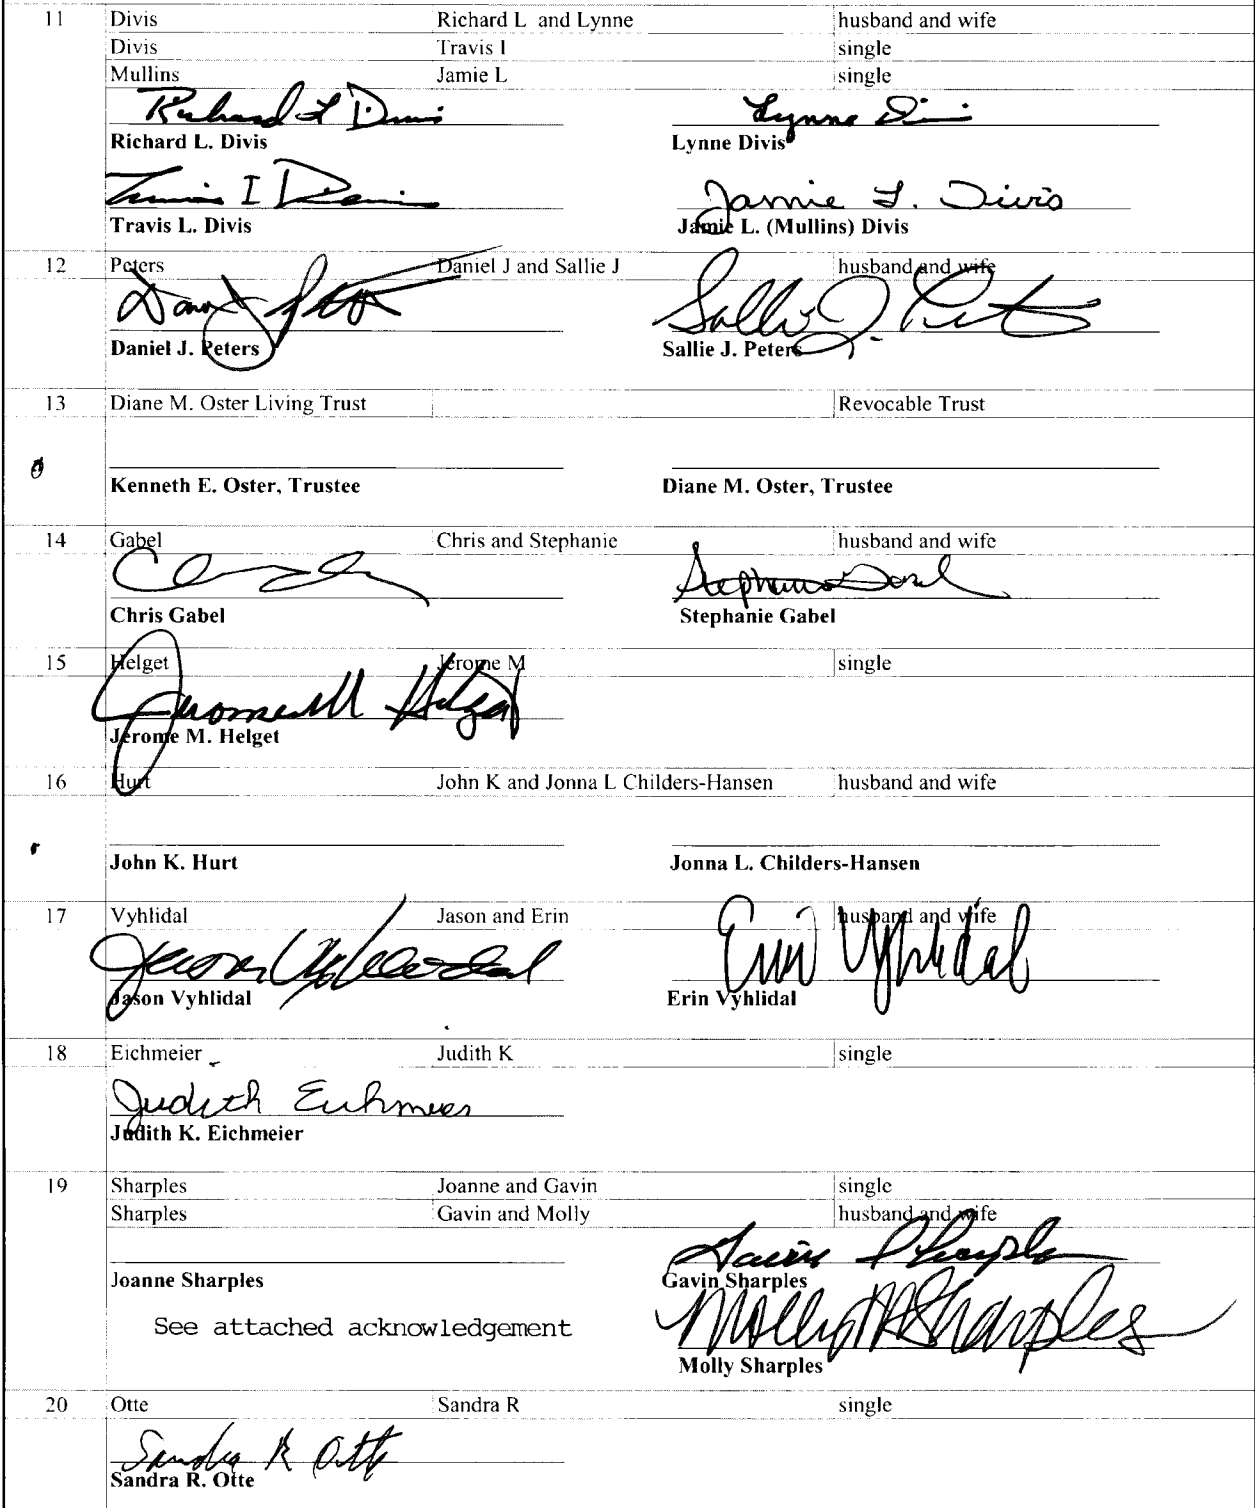 11 Divis Richard L and Lynne husband and wife
Divis Travis I single
Mullins Jamie L single
Richard L Divis Lynne Divis
Richard L. Divis Lynne Divis
Travis I Divis Jamie L. Divis
Travis L. Divis Jamie L. (Mullins) Divis
12 Peters Daniel J and Sallie J husband and wife
Sallie J. Peters
Daniel J. Peters Sallie J. Peters
13 Diane M. Oster Living Trust Revocable Trust
Kenneth E. Oster, Trustee Diane M. Oster, Trustee
14 Gabel Chris and Stephanie husband and wife
Stephanie Gabel
Chris Gabel Stephanie Gabel
15 Helget Jerome M single
Jerome M Helget
Jerome M. Helget
16 Hurt John K and Jonna L Childers-Hansen husband and wife
John K. Hurt Jonna L. Childers-Hansen
17 Vyhlidal Jason and Erin husband and wife
Jason Vyhlidal Erin Vyhlidal
Jason Vyhlidal Erin Vyhlidal
18 Eichmeier Judith K single
Judith Eichmeier
Judith K. Eichmeier
19 Sharples Joanne and Gavin single
Sharples Gavin and Molly husband and wife
Gavin Sharples
Joanne Sharples Gavin Sharples
See attached acknowledgement Molly M Sharples
Molly Sharples
20 Otte Sandra R single
Sandra R Otte
Sandra R. Otte